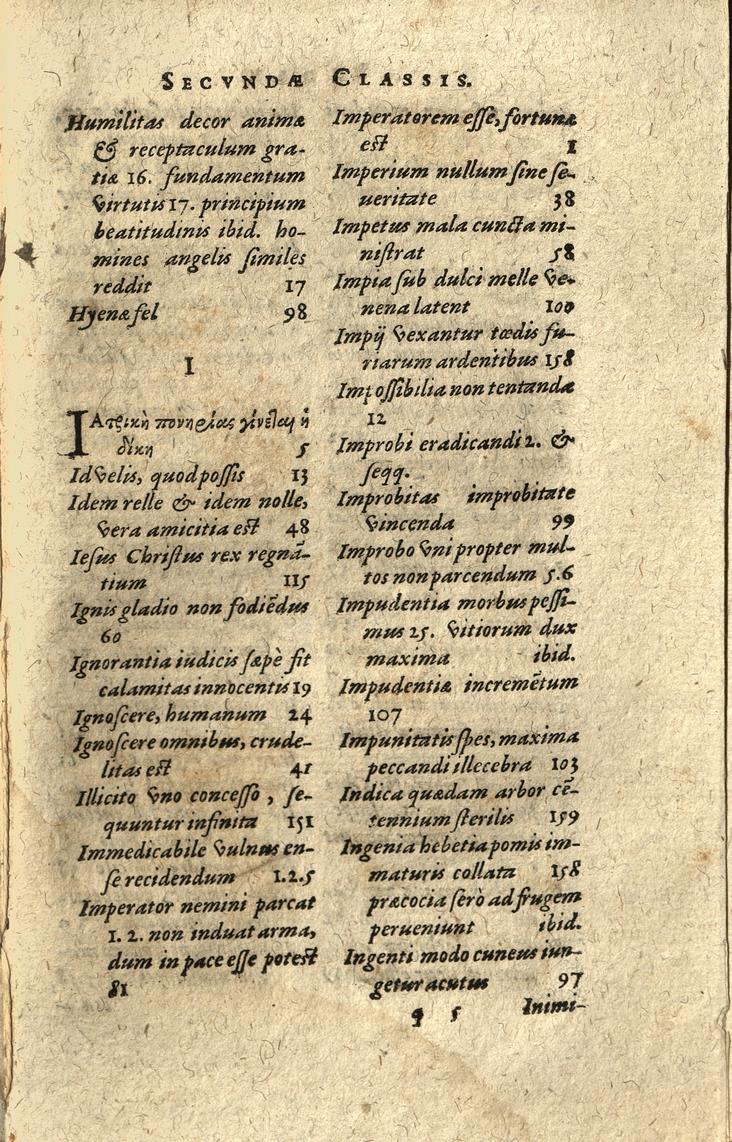 SECVNDÆ CLASSIS.
Humilitas decor animæ
& receptaculum gra-
tiæ 16. fundamentum
virtutis 17. principium
beatitudinis ibid. ho-
mines angelis similes
reddit 17
Hyenæ fel 98
I
IAτρικὴ πονηρίας γίνεται ἡ
δίκη 5
Id velis, quod possis 13
Idem relle & idem nolle,
vera amicitia est 48
Iesus Christus rex regnā-
tium 115
Ignis gladio non fodiēdus
60
Ignorantia iudicis sæpè fit
calamitas innocentis 19
Ignoscere, humanum 24
Ignoscere omnibus, crude-
litas est 41
Illicito vno concesso, se-
quuntur infinita 151
Immedicabile vulnus en-
se recidendum 1.2.5
Imperator nemini parcat
1. 2. non induat arma,
dum in pace esse potest
81
Imperatorem esse, fortunæ
est 1
Imperium nullum sine se-
ueritate 38
Impetus mala cuncta mi-
nistrat 58
Impia sub dulci melle ve-
nena latent 100
Impij vexantur tœdis fu-
riarum ardentibus 158
Impossibilia non tentanda
12
Improbi eradicandi 2. &
seqq.
Improbitas improbitate
vincenda 99
Improbo vni propter mul-
tos non parcendum 5.6
Impudentia morbus pessi-
mus 25. vitiorum dux
maxima ibid.
Impudentiæ incremētum
107
Impunitatis spes, maxima
peccandi illecebra 103
Indica quædam arbor cē-
tennium sterilis 159
Ingenia hebetia pomis im-
maturis collata 158
præcocia serò ad frugem
perueniunt ibid.
Ingenti modo cuneus iun-
getur acutus 97
q 5 Inimi-